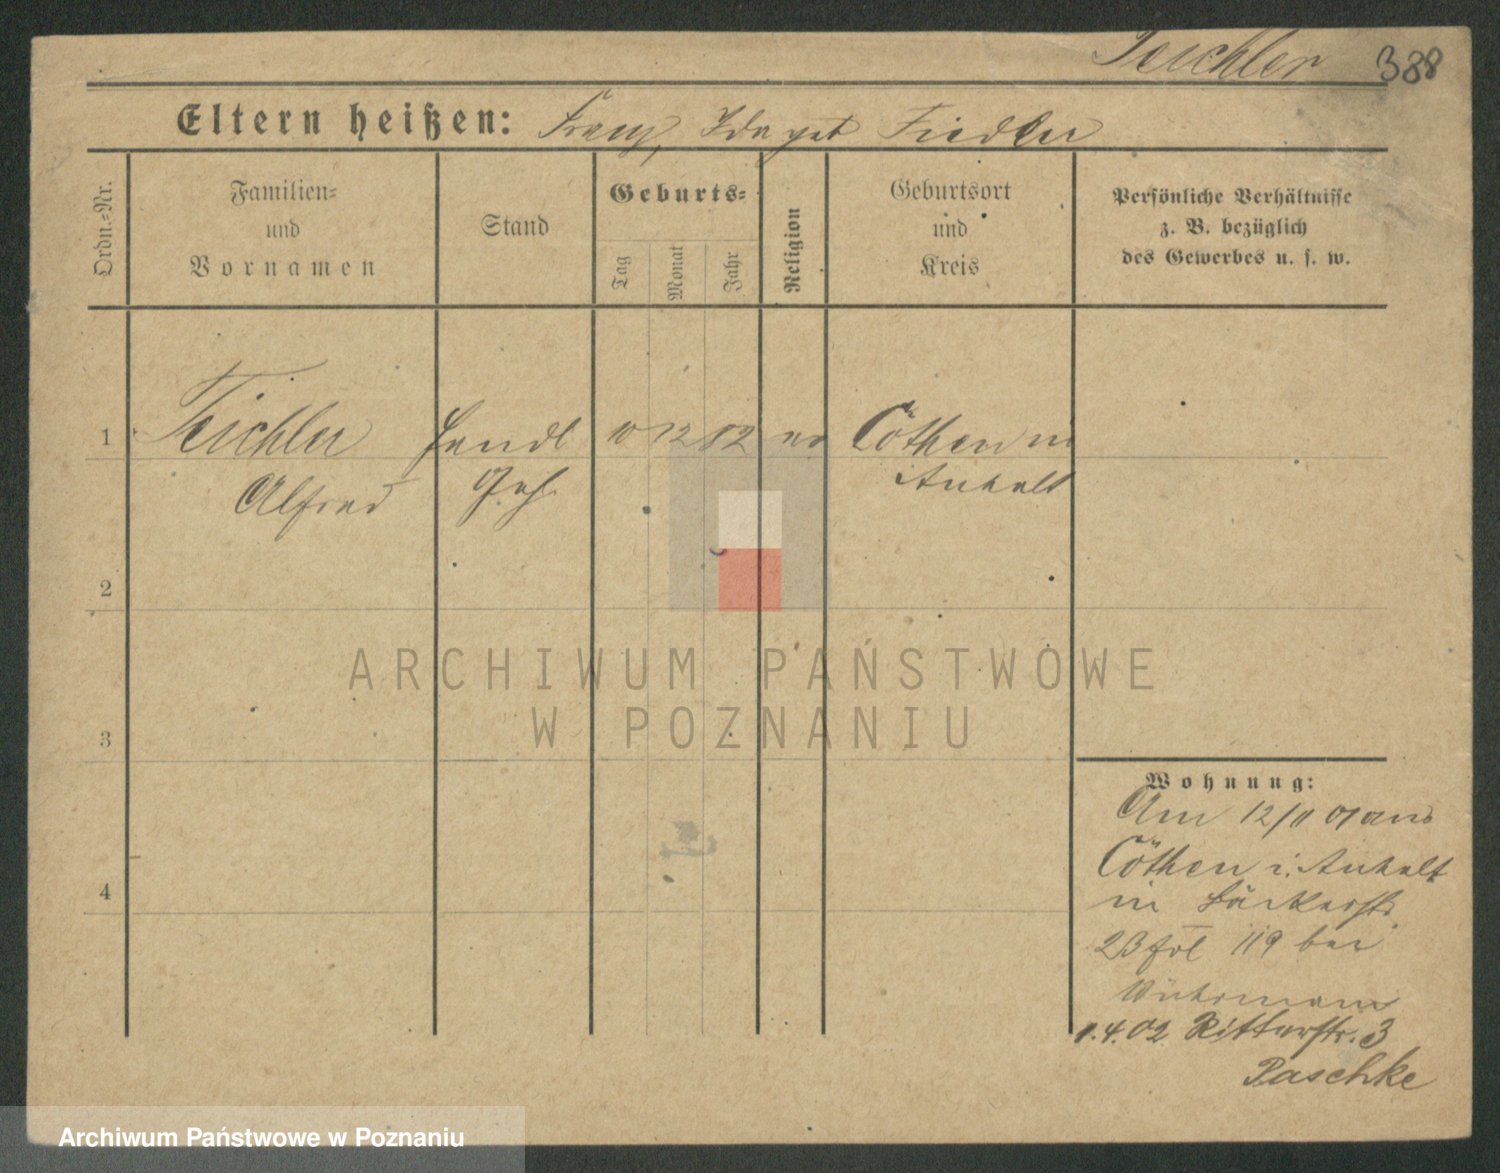 Teichler 388
Eltern heißen: Franz, Ida geb Fiedler
Ordn.-Nr.
Familien-
und
Vornamen
Stand
Geburts-
Tag
Monat
Jahr
Religion
Geburtsort
und
Kreis
Persönliche Verhältnisse
z. B. bezüglich
des Gewerbes u. s. w.
1 Teichler Handl 10 12 82 ev Cöthen in
Alfred Geh. Anhalt
2
3
4
ARCHIWUM PAŃSTWOWE
W POZNANIU
Wohnung:
Am 12/11 01 aus
Cöthen i. Anhalt
in Bäckerstr.
23 fol 119 bei
1.4.02 Ritterstr. 3
Paschke
Archiwum Państwowe w Poznaniu